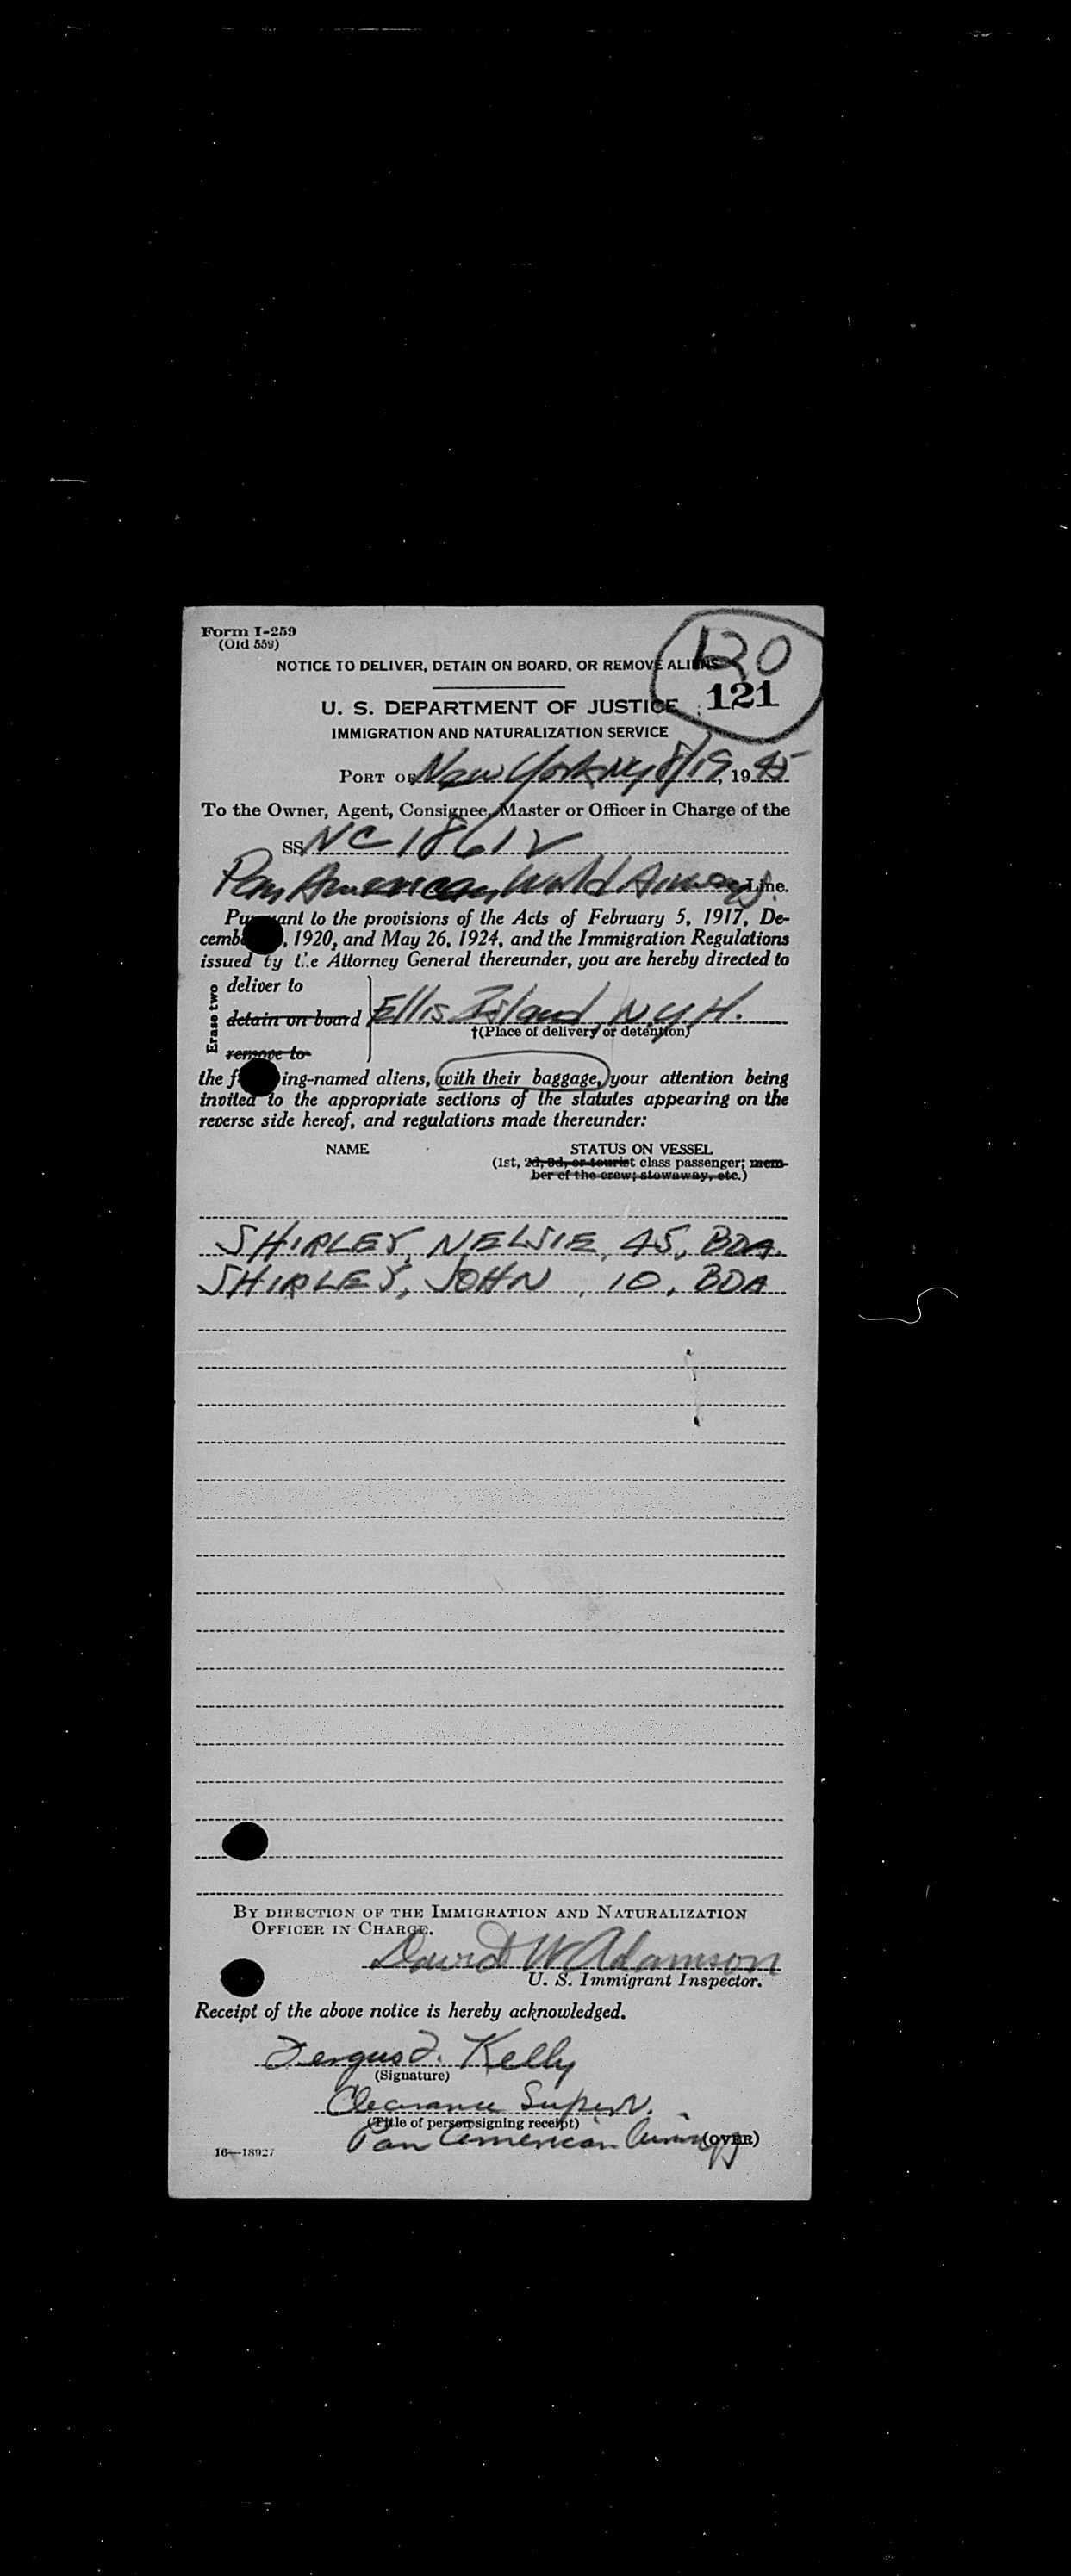 Form I-259
(Old 559)
120
NOTICE TO DELIVER, DETAIN ON BOARD, OR REMOVE ALIENS
121
U. S. DEPARTMENT OF JUSTICE
IMMIGRATION AND NATURALIZATION SERVICE
PORT OF New York NY 8/19, 1945
To the Owner, Agent, Consignee, Master or Officer in Charge of the
SS NC 18612
Pan American World Airways Line.
Pursuant to the provisions of the Acts of February 5, 1917, De-
cemb , 1920, and May 26, 1924, and the Immigration Regulations
issued by the Attorney General thereunder, you are hereby directed to
Erase two
deliver to
detain on board Ellis Island, N.Y.H.
†(Place of delivery or detention)
remove to
the f ing-named aliens, with their baggage, your attention being
invited to the appropriate sections of the statutes appearing on the
reverse side hereof, and regulations made thereunder:
NAME STATUS ON VESSEL
(1st, 2d, 3d, or tourist class passenger; mem-
ber of the crew; stowaway, etc.)
SHIRLEY, NELSIE, 45, BDA.
SHIRLEY, JOHN, 10, BDA
BY DIRECTION OF THE IMMIGRATION AND NATURALIZATION
OFFICER IN CHARGE.
David W Adamson
U. S. Immigrant Inspector.
Receipt of the above notice is hereby acknowledged.
Fergus J. Kelly
(Signature)
Clearance Superv.
(Title of person signing receipt)
Pan American Airways
(OVER)
16—18927